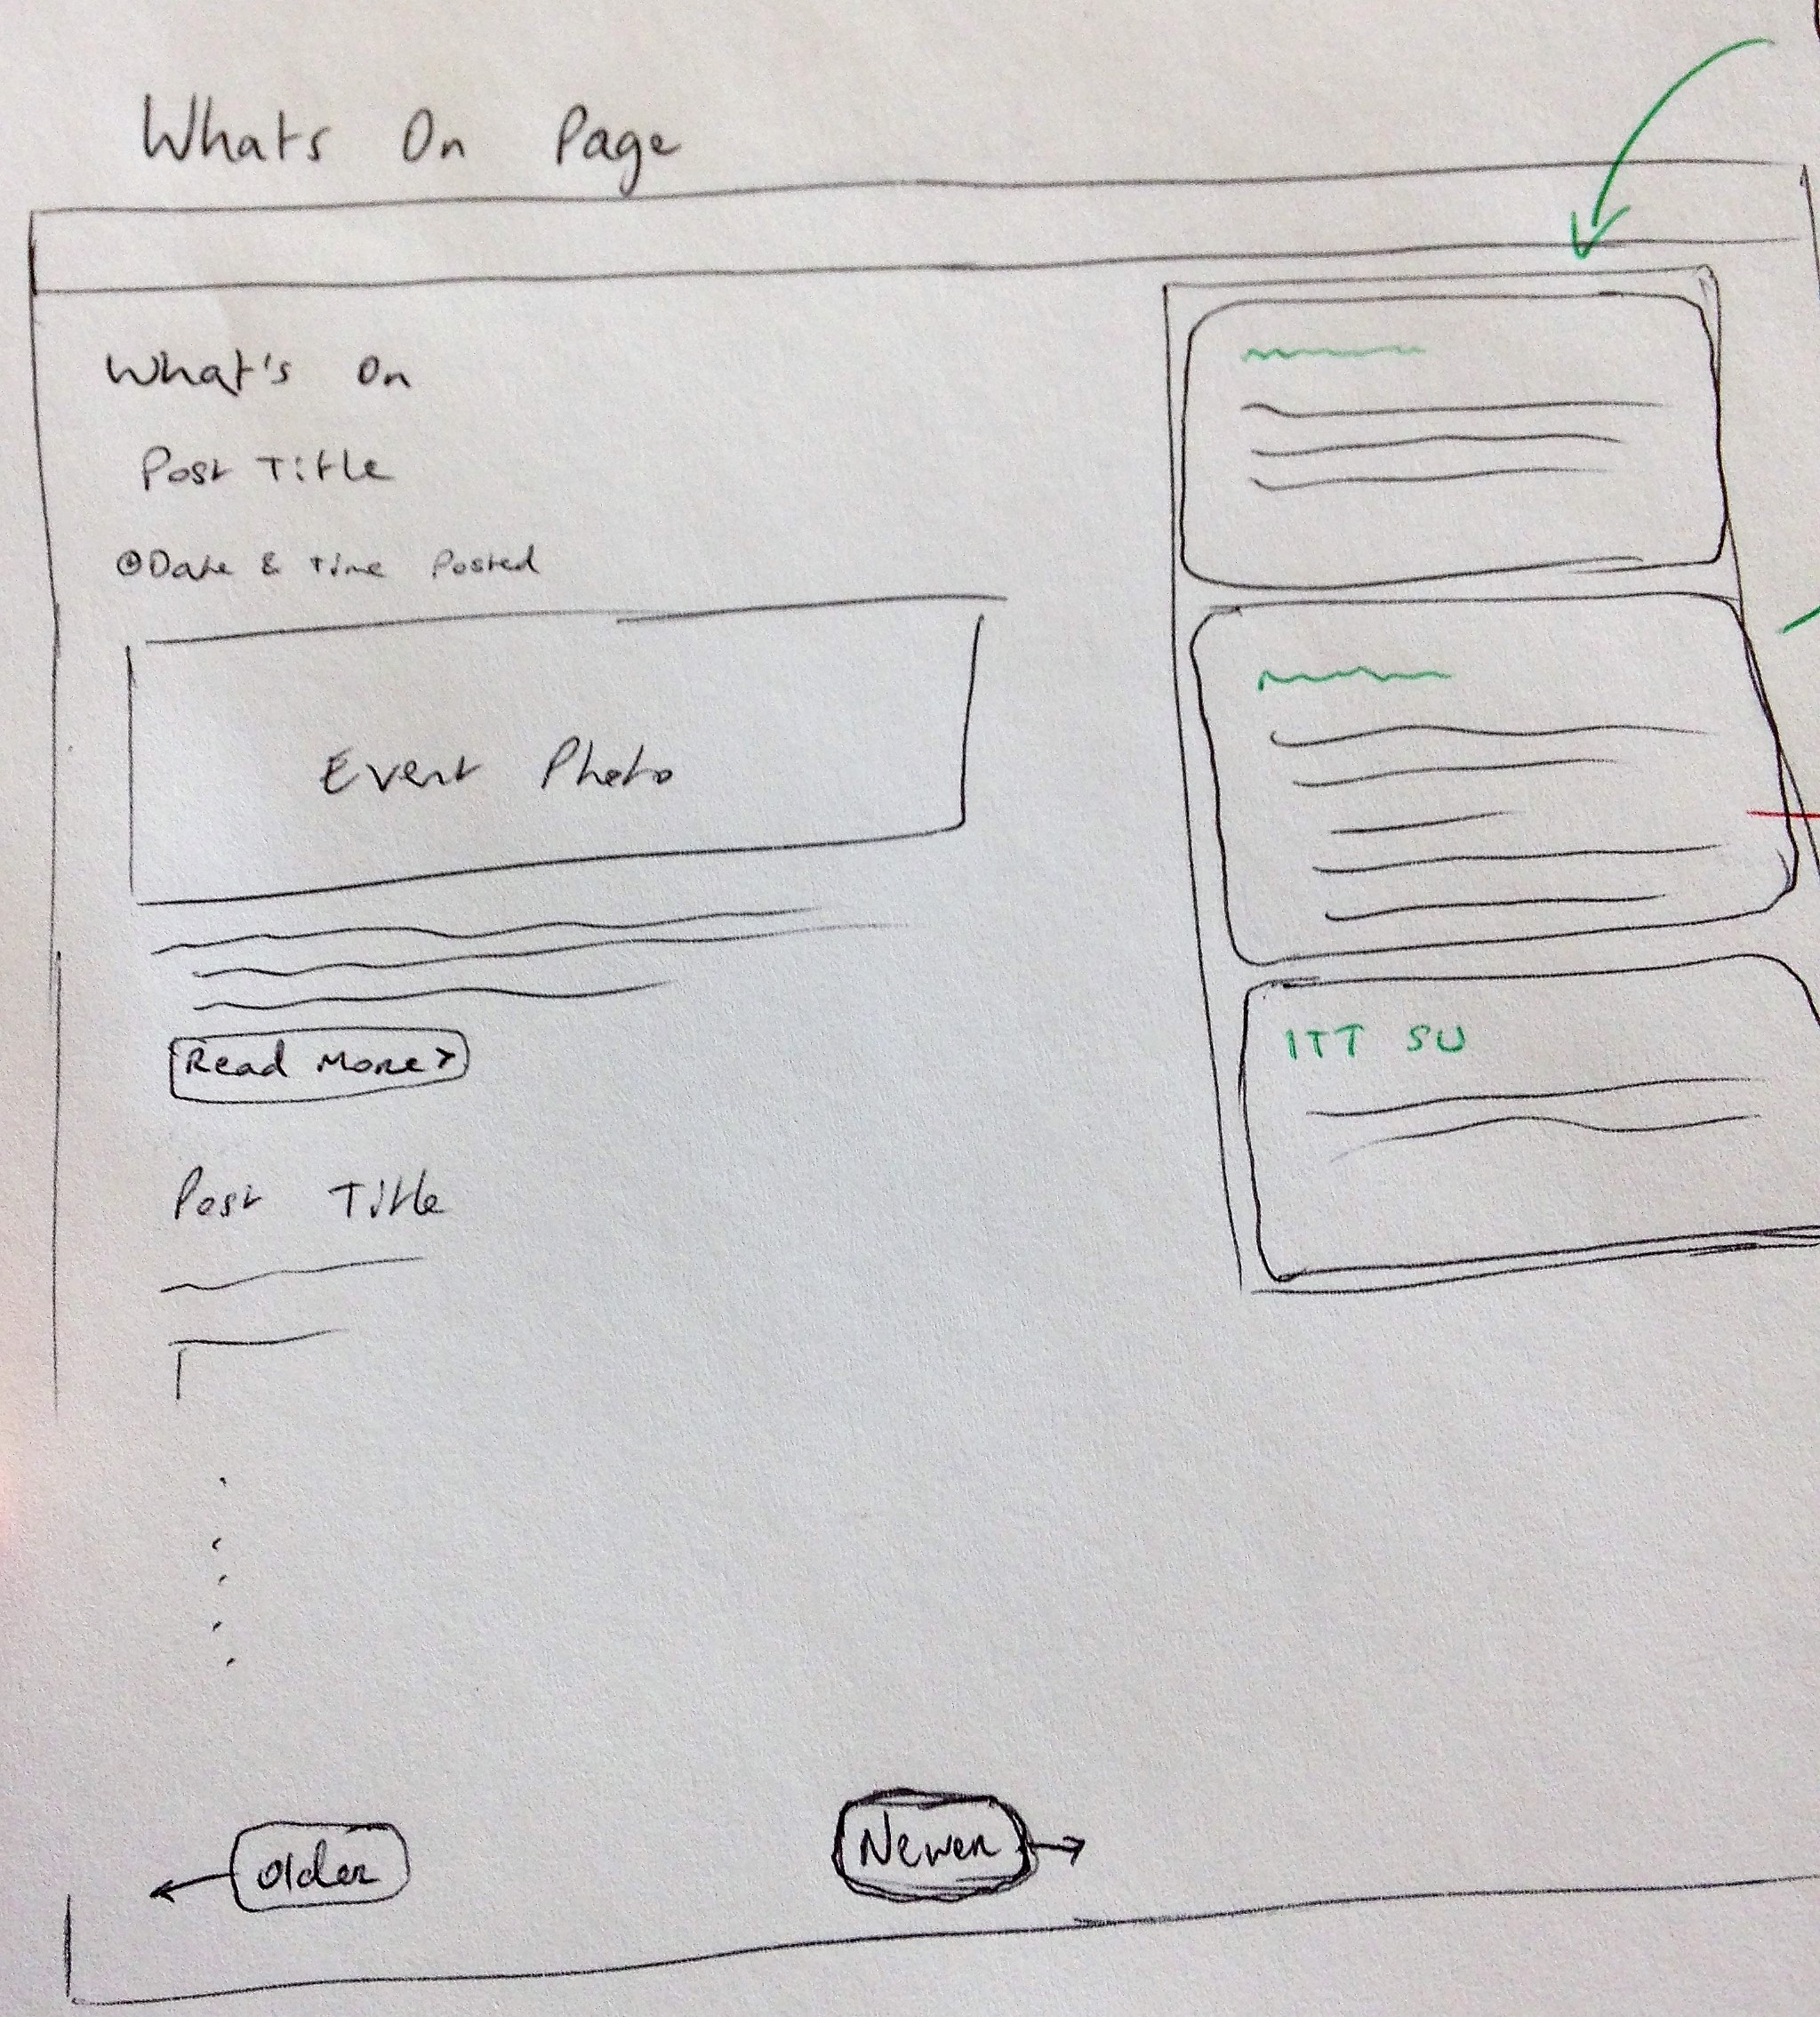 Whats On Page
What's On
Post Title
Date & Time Posted
Event Photo
Read More >
Post Title
ITT SU
Older
Newer